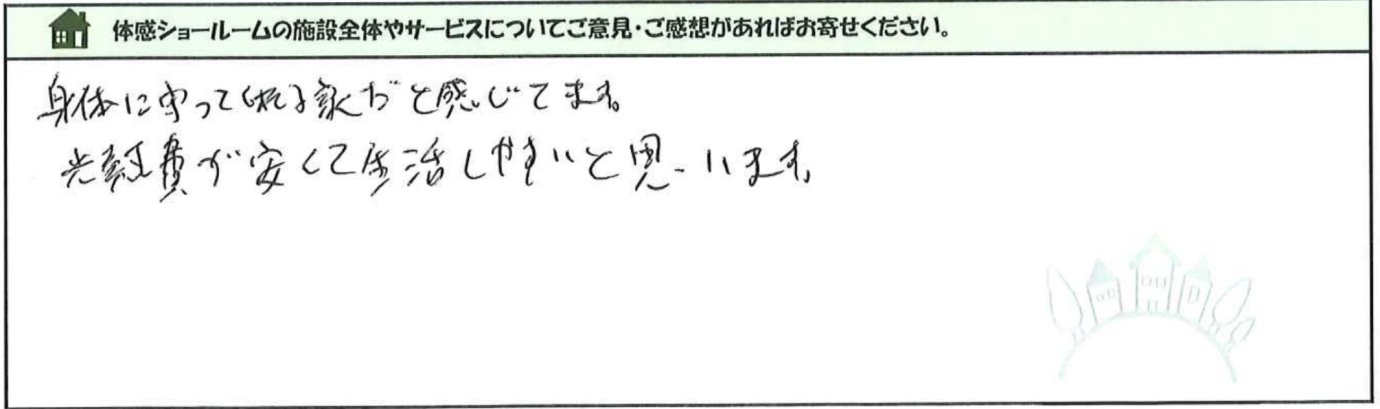 体感ショールームの施設全体やサービスについてご意見・ご感想があればお寄せください。
身体に守ってくれる家だと感じてます。
光熱費が安くて生活しやすいと思います。